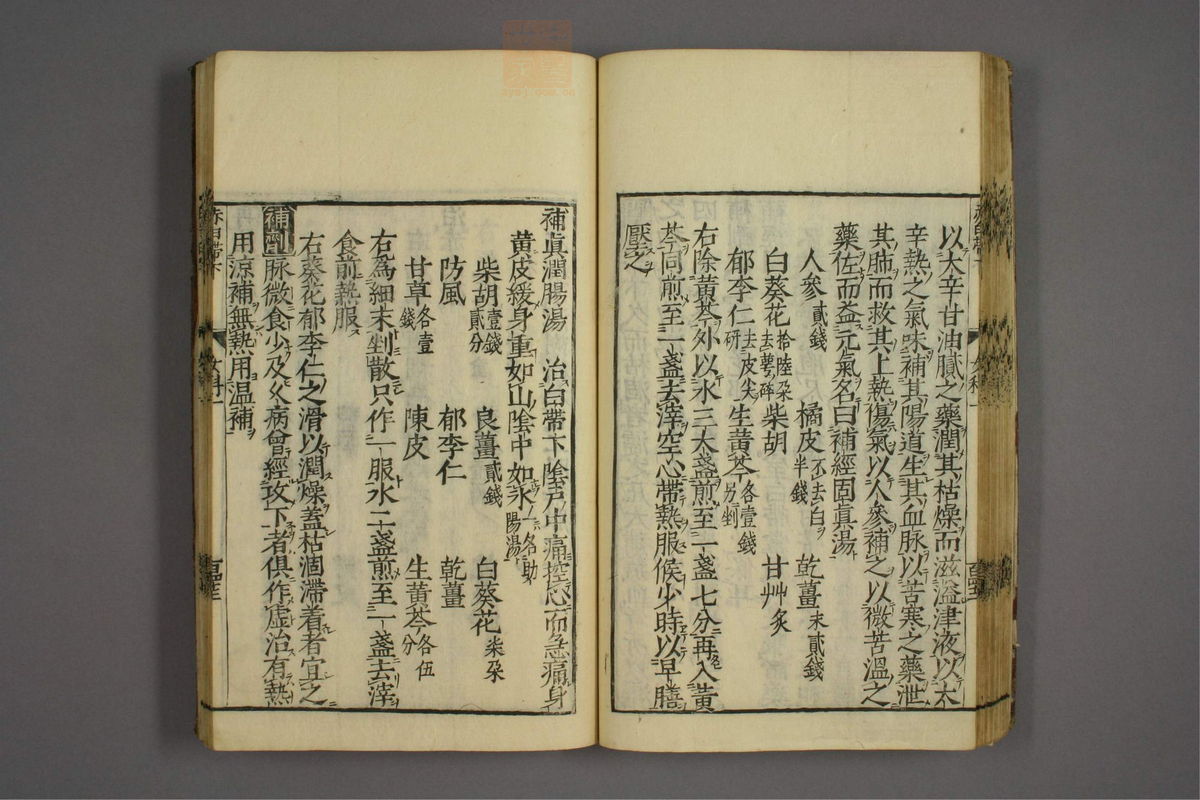 以大辛甘油膩之藥潤其枯燥而滋溢津液以大
辛熱之氣味補其陽道生其血脉以苦寒之藥泄
其肺而救其上熱傷氣以人參補之以微苦溫之
藥佐而益元氣名曰補經固真湯
人參貳錢 橘皮不去白半錢 乾薑末貳錢
白葵花拾陸朶去萼碎 柴胡 甘艸炙
郁李仁去皮尖研 生黃芩各壹錢另剉
右除黃芩外以水三大盞煎至一盞七分再入黃
芩同煎至一盞去滓空心帶熱服候少時以早膳
壓之
補真潤腸湯 治白帶下陰戶中痛控心而急痛身
黃皮緩身重如山陰中如氷一名助陽湯
柴胡壹錢貳分 良薑貳錢 白葵花柒朶
防風 郁李仁 乾薑
甘草各壹錢 陳皮 生黃芩各伍分
右爲細末剉散只作一服水二盞煎至一盞去滓
食前熱服
右葵花郁李仁之滑以潤燥蓋枯涸滯着者宜之
補劑脉微食少及久病曾經攻下者俱作虛治有熱
用涼補無熱用溫補
赤白帶下
女科一